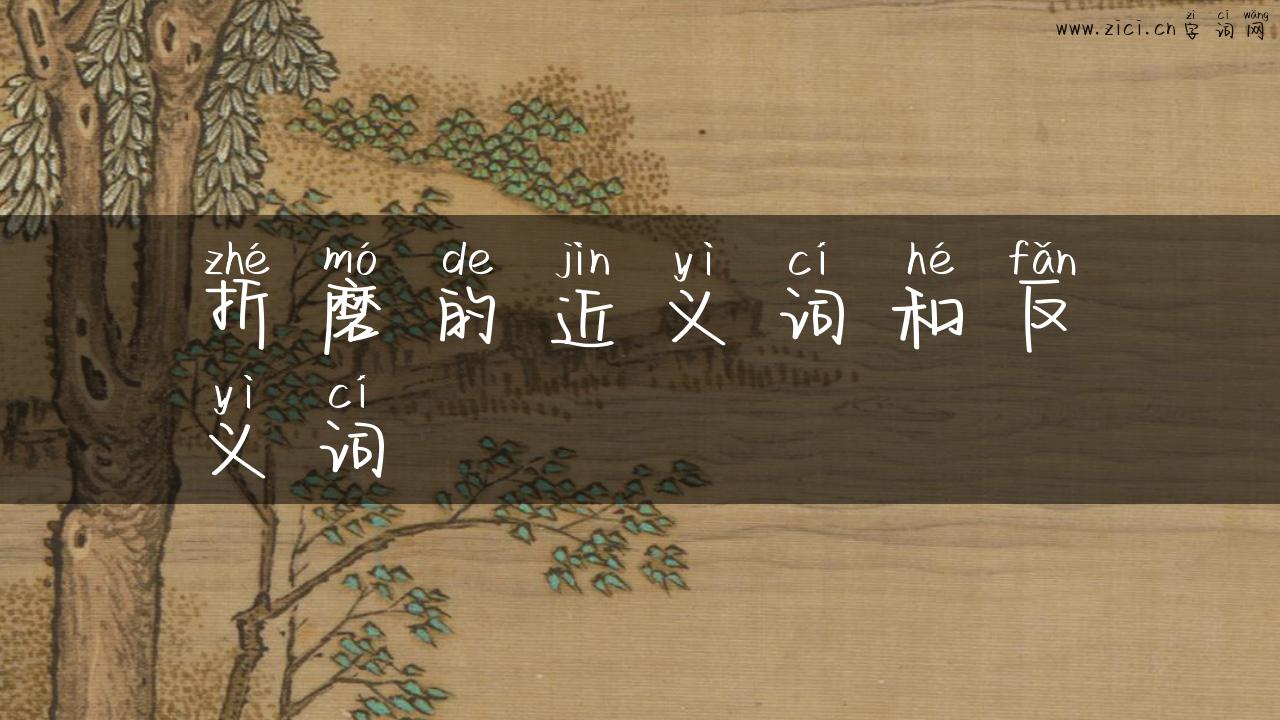 zì cí wǎng
www.zici.cn 字词网
zhé mó de jìn yì cí hé fǎn
折磨的近义词和反
yì cí
义词